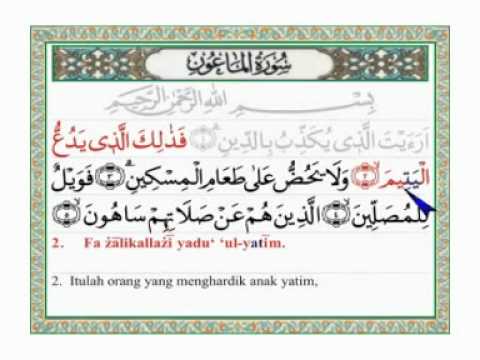 سُورَةُ الْمَاعُونِ
بِسْمِ اللَّهِ الرَّحْمَٰنِ الرَّحِيمِ
اَرَءَيْتَ الَّذِي يُكَذِّبُ بِالدِّينِ ۝١ فَذَٰلِكَ الَّذِي يَدُعُّ
الْيَتِيمَ ۝٢ وَلَا يَحُضُّ عَلَىٰ طَعَامِ الْمِسْكِينِ ۝٣ فَوَيْلٌ
لِلْمُصَلِّينَ ۝٤ الَّذِينَ هُمْ عَنْ صَلَاتِهِمْ سَاهُونَ ۝٥
2. Fa żālikallażī yadu‘ ‘ul-yatīm.
2. Itulah orang yang menghardik anak yatim,